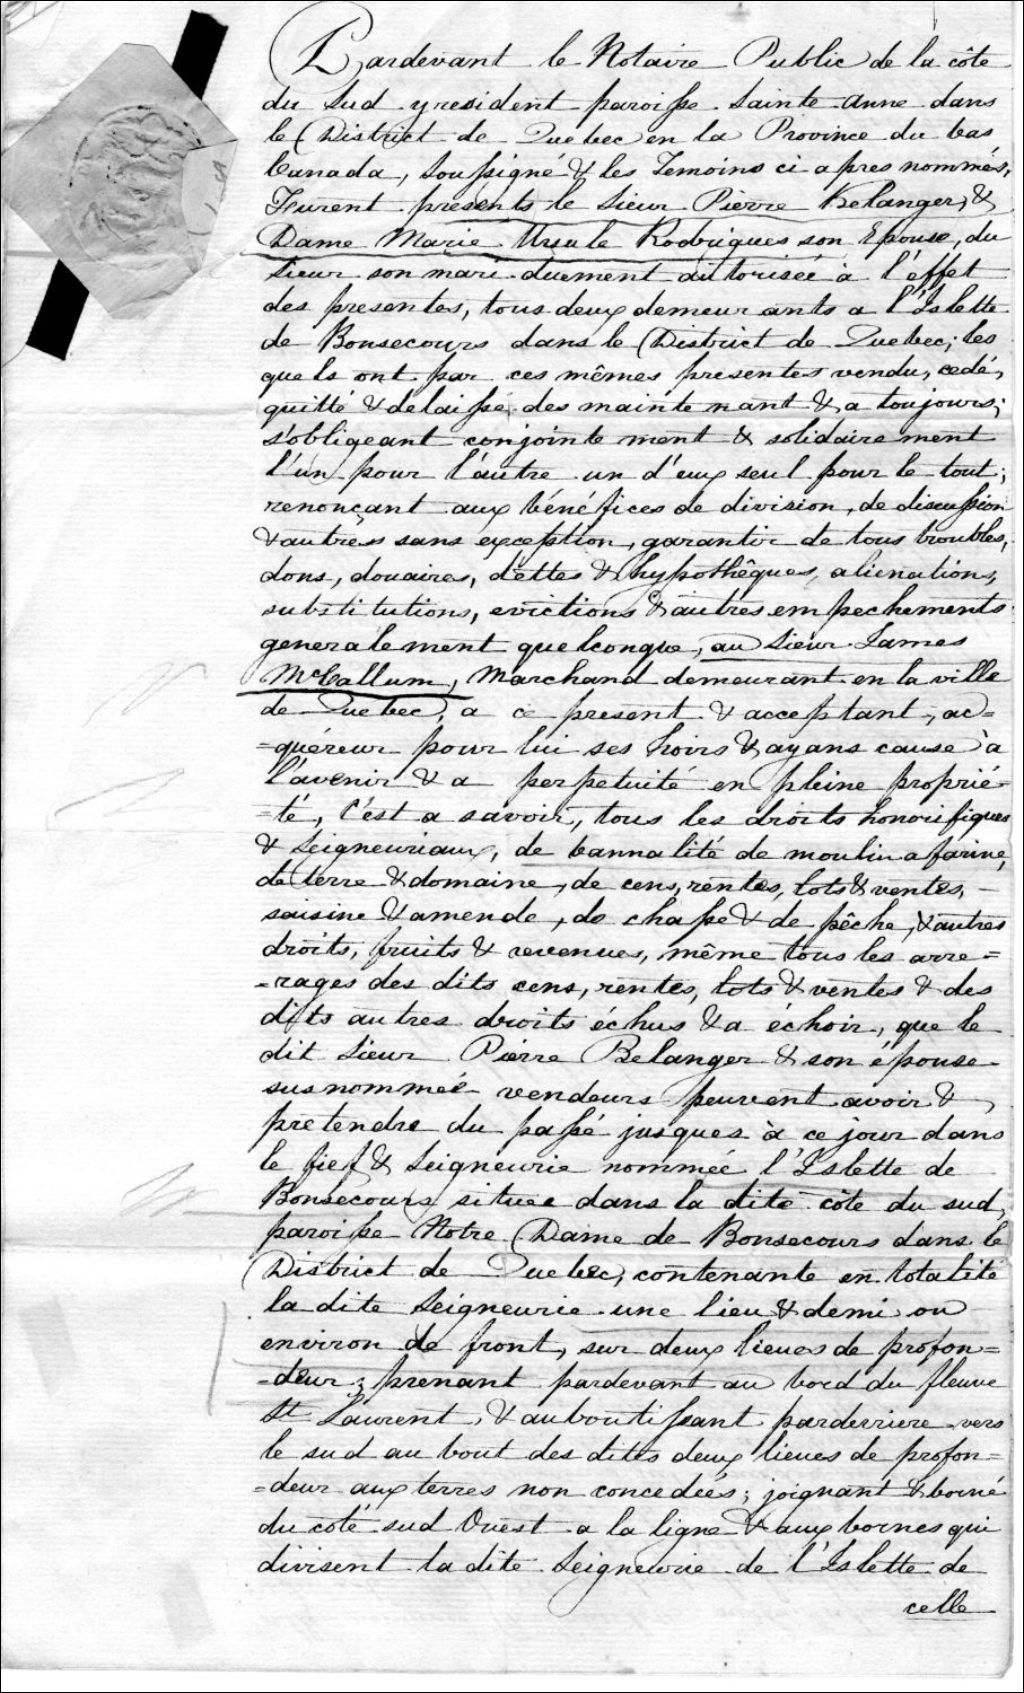 Pardevant le Notaire Public de la côte
du Sud y resident paroisse Sainte Anne dans
le District de Quebec en la Province du bas
Canada, soussigné & les Temoins ci apres nommés,
Furent presents le Sieur Pierre Belanger, &
Dame Marie Ursule Rodrigues son Epouse, du
Sieur son mari duement autorisée à l'effet
des presentes, tous deux demeurants a l'Islette
de Bonsecours dans le District de Quebec; les
quels ont par ces mêmes presentes vendu, cedé,
quitté & delaissé des maintenant & a toujours;
s'obligeant conjointement & solidairement
l'un pour l'autre un d'eux seul pour le tout;
renonçant aux bénéfices de division, de discussion
& autres sans exception, garantir de tous troubles,
dons, douaires, dettes & hypothêques, alienations,
substitutions, evictions & autres empechements
generalement quelconque, au Sieur James
McCallum, Marchand demeurant en la ville
de Quebec, a ce present & acceptant, ac=
=quéreur pour lui ses hoirs & ayans cause à
l'avenir & a perpetuité en pleine proprié=
=té, C'est a savoir, tous les droits honorifiques
& Seigneuriaux, de bannalité de moulin a farine,
de terre & domaine, de cens, rentes, lots & ventes,
saisine & amende, de chasse & de pêche, & autres
droits, fruits & revenues, même tous les arre=
=rages des dits cens, rentes, lots & ventes & des
dits autres droits échus & a échoir, que le
dit Sieur Pierre Belanger & son épouse
susnommée vendeurs peuvent avoir &
pretendre du passé jusques à ce jour dans
le fief & Seigneurie nommée l'Islette de
Bonsecours située dans la dite côte du sud,
paroisse Notre Dame de Bonsecours dans le
District de Quebec, contenante en totalité
la dite Seigneurie une lieu & demi ou
environ de front, sur deux lieues de profon=
=deur; prenant pardevant au bord du fleuve
St Laurent, & auboutissant parderriere vers
le sud au bout des dites deux lieues de profon=
=deur aux terres non concedées; joignant & borné
du coté sud Ouest a la ligne & aux bornes qui
divisent la dite Seigneurie de l'Islette de
celle